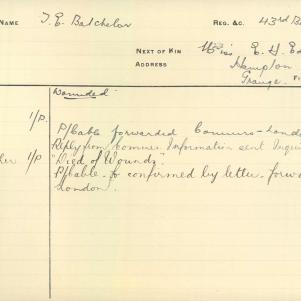 NAME T. E. Batchelor REG. &C. 43rd Ba
NEXT OF KIN Miss E. H. Ed
ADDRESS Hampton
Grange. F
Wounded.
1/P. P/Cable forwarded Commrs-Lond
Reply from Commrs. Information sent Inqui
ber 1/P "Died of Wounds".
P/Cable - to confirmed by letter - forwa
London.